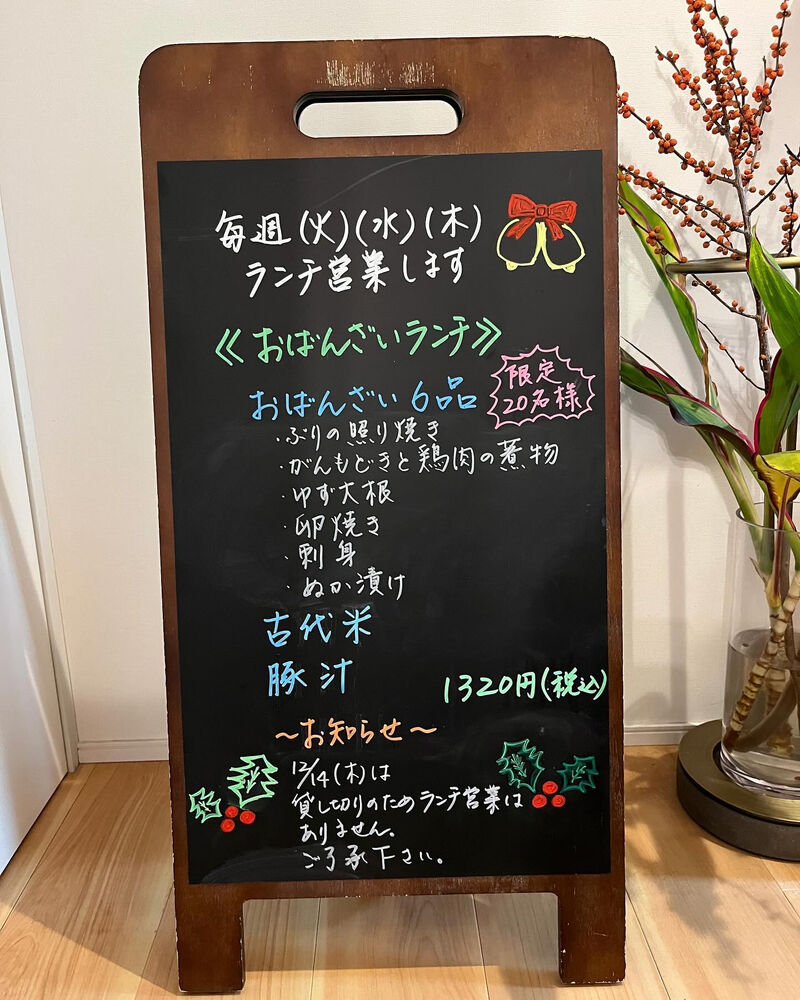 毎週(火)(水)(木)
ランチ営業します
≪おばんざいランチ≫
限定
20名様
おばんざい6品
・ぶりの照り焼き
・がんもどきと鶏肉の煮物
・ゆず大根
・卵焼き
・刺身
・ぬか漬け
古代米
豚汁
1320円(税込)
～お知らせ～
12/14(木)は
貸し切りのためランチ営業は
ありません。
ご了承下さい。